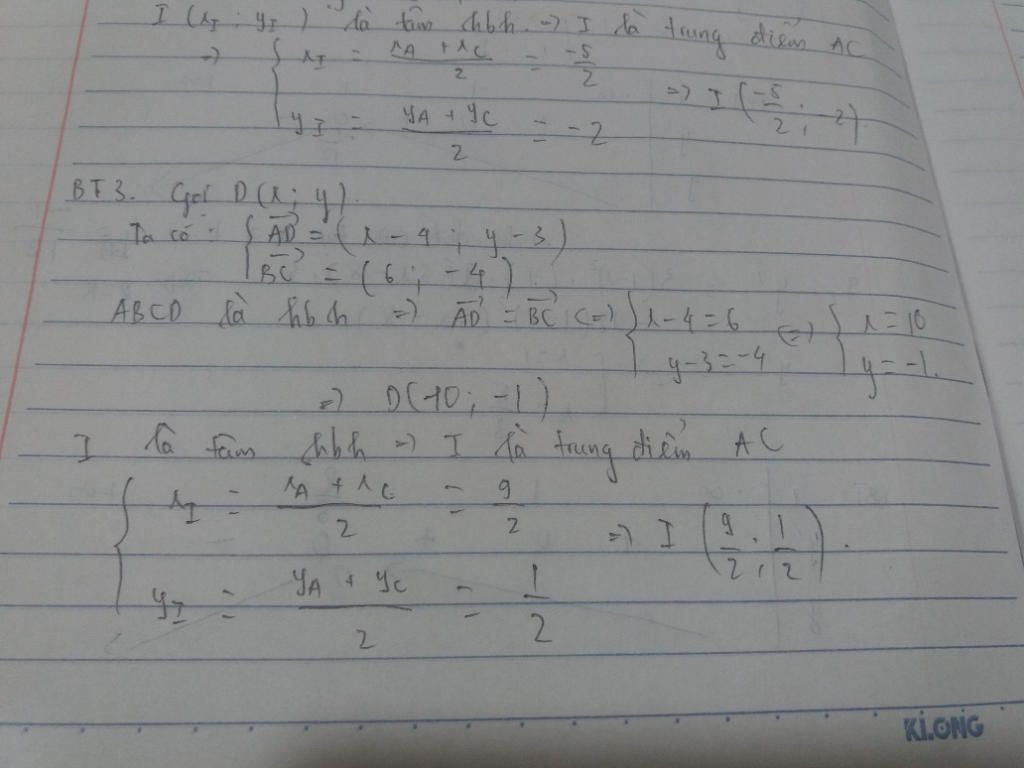 I (x_I ; y_I) là tâm hbh. => I là trung điểm AC
=> { x_I = (x_A + x_C)/2 = -5/2
y_I = (y_A + y_C)/2 = -2 => I (-5/2 ; -2)
BT3. Gọi D(x; y).
Ta có : { AD→ = (x - 4 ; y - 3)
BC→ = (6 ; -4)
ABCD là hbh => AD→ = BC→ <=> { x - 4 = 6 <=> { x = 10
y - 3 = -4 y = -1.
=> D(10 ; -1)
I là tâm hbh => I là trung điểm AC
{ x_I = (x_A + x_C)/2 = 9/2 => I (9/2 ; 1/2).
y_I = (y_A + y_C)/2 = 1/2
KLONG